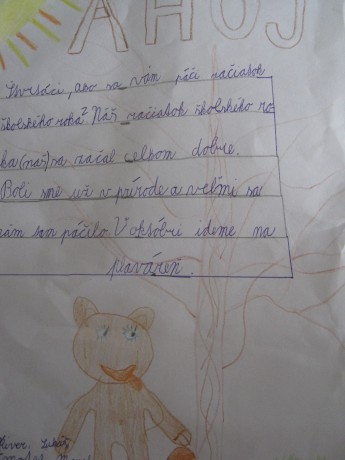 AHOJ
Štvrtáci, ako sa vám páči začiatok
školského roka? Náš začiatok školského ro
ka (nás) sa začal celkom dobre.
Boli sme už v prírode a veľmi sa
nám tam páčilo. V októbri ideme na
plaváreň.